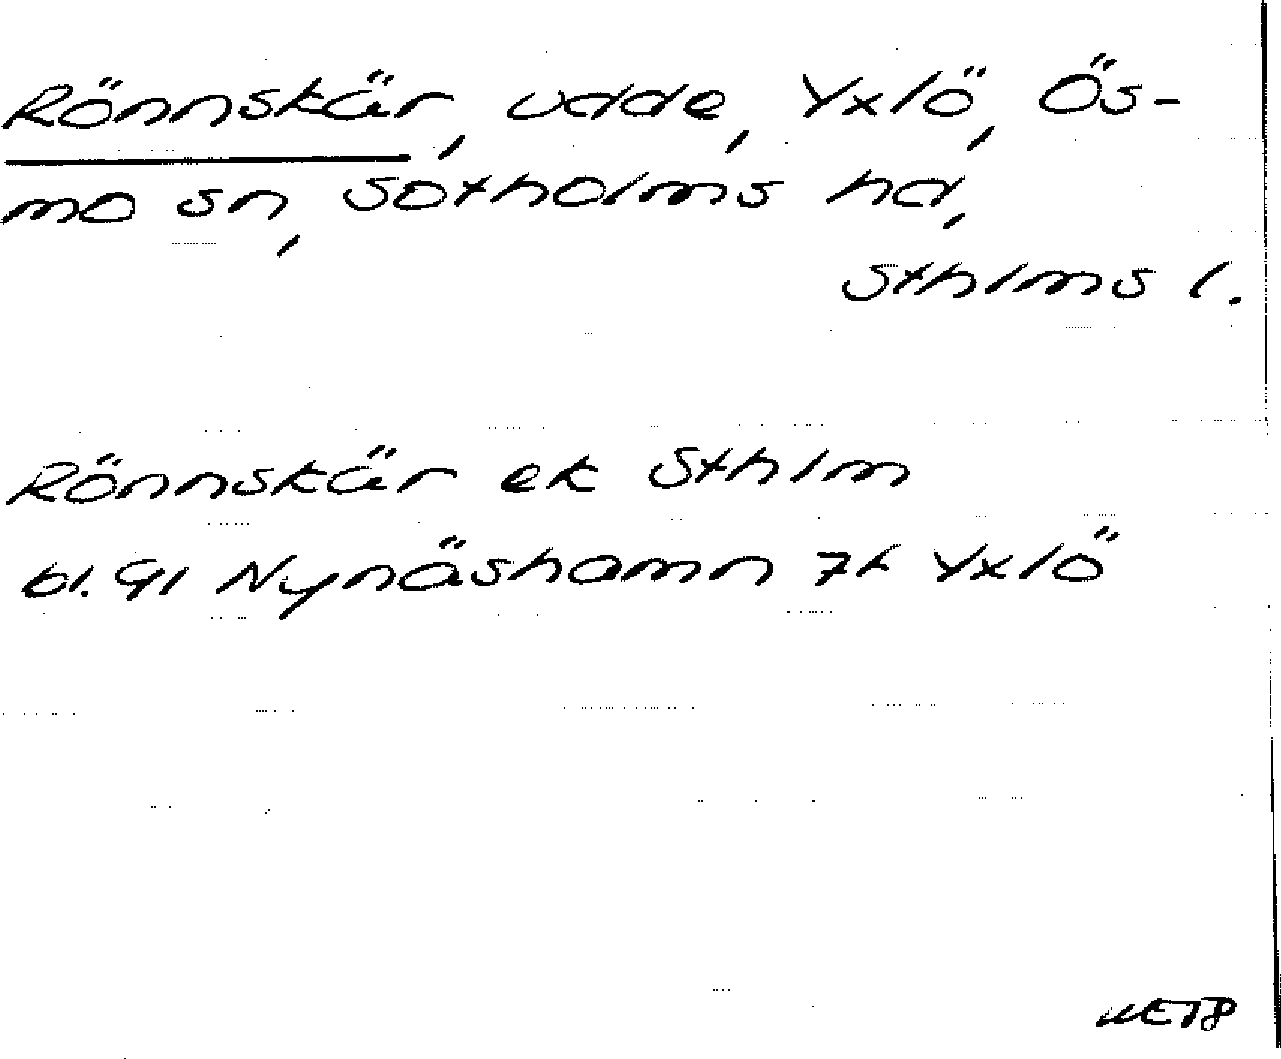 Rönnskär, udde, Yxlö, Ös-
mo sn, Sotholms hd,
Sthlms l.
Rönnskär ek Sthlm
bl. 91 Nynäshamn 7h Yxlö